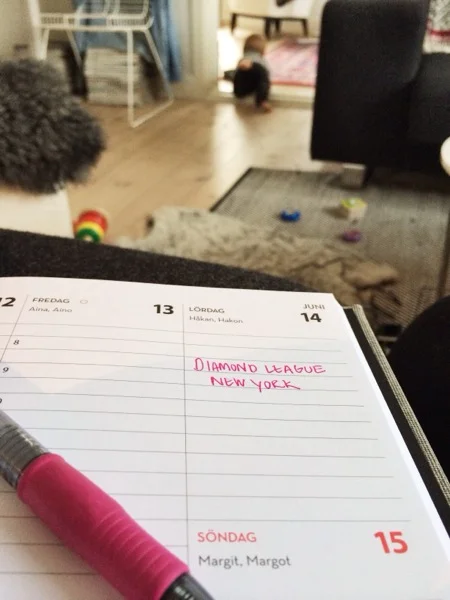 12
FREDAG
13
Aina, Aino
8
9
LÖRDAG
JUNI
14
Håkan, Hakon
DIAMOND LEAGUE
NEW YORK
SÖNDAG
15
Margit, Margot